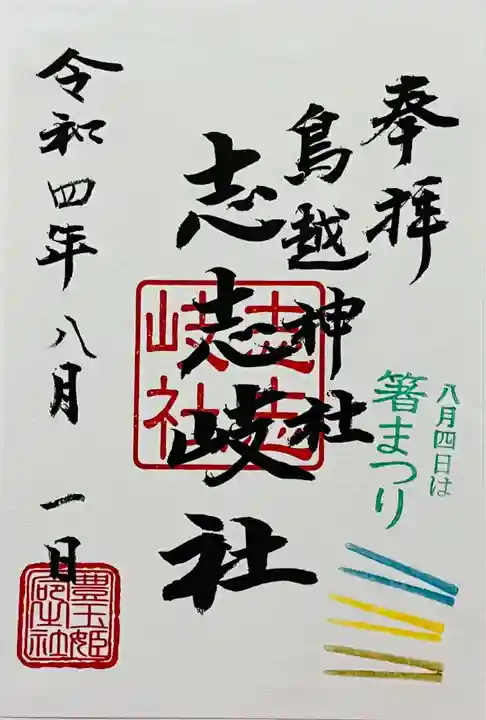 奉拝
八月四日は
箸まつり
鳥越神社
志志岐社
志志岐社
令和四年八月一日
豊玉姫